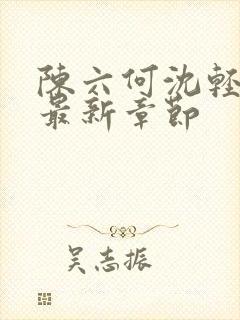 陳六何沈輕
最新章節
吴志振